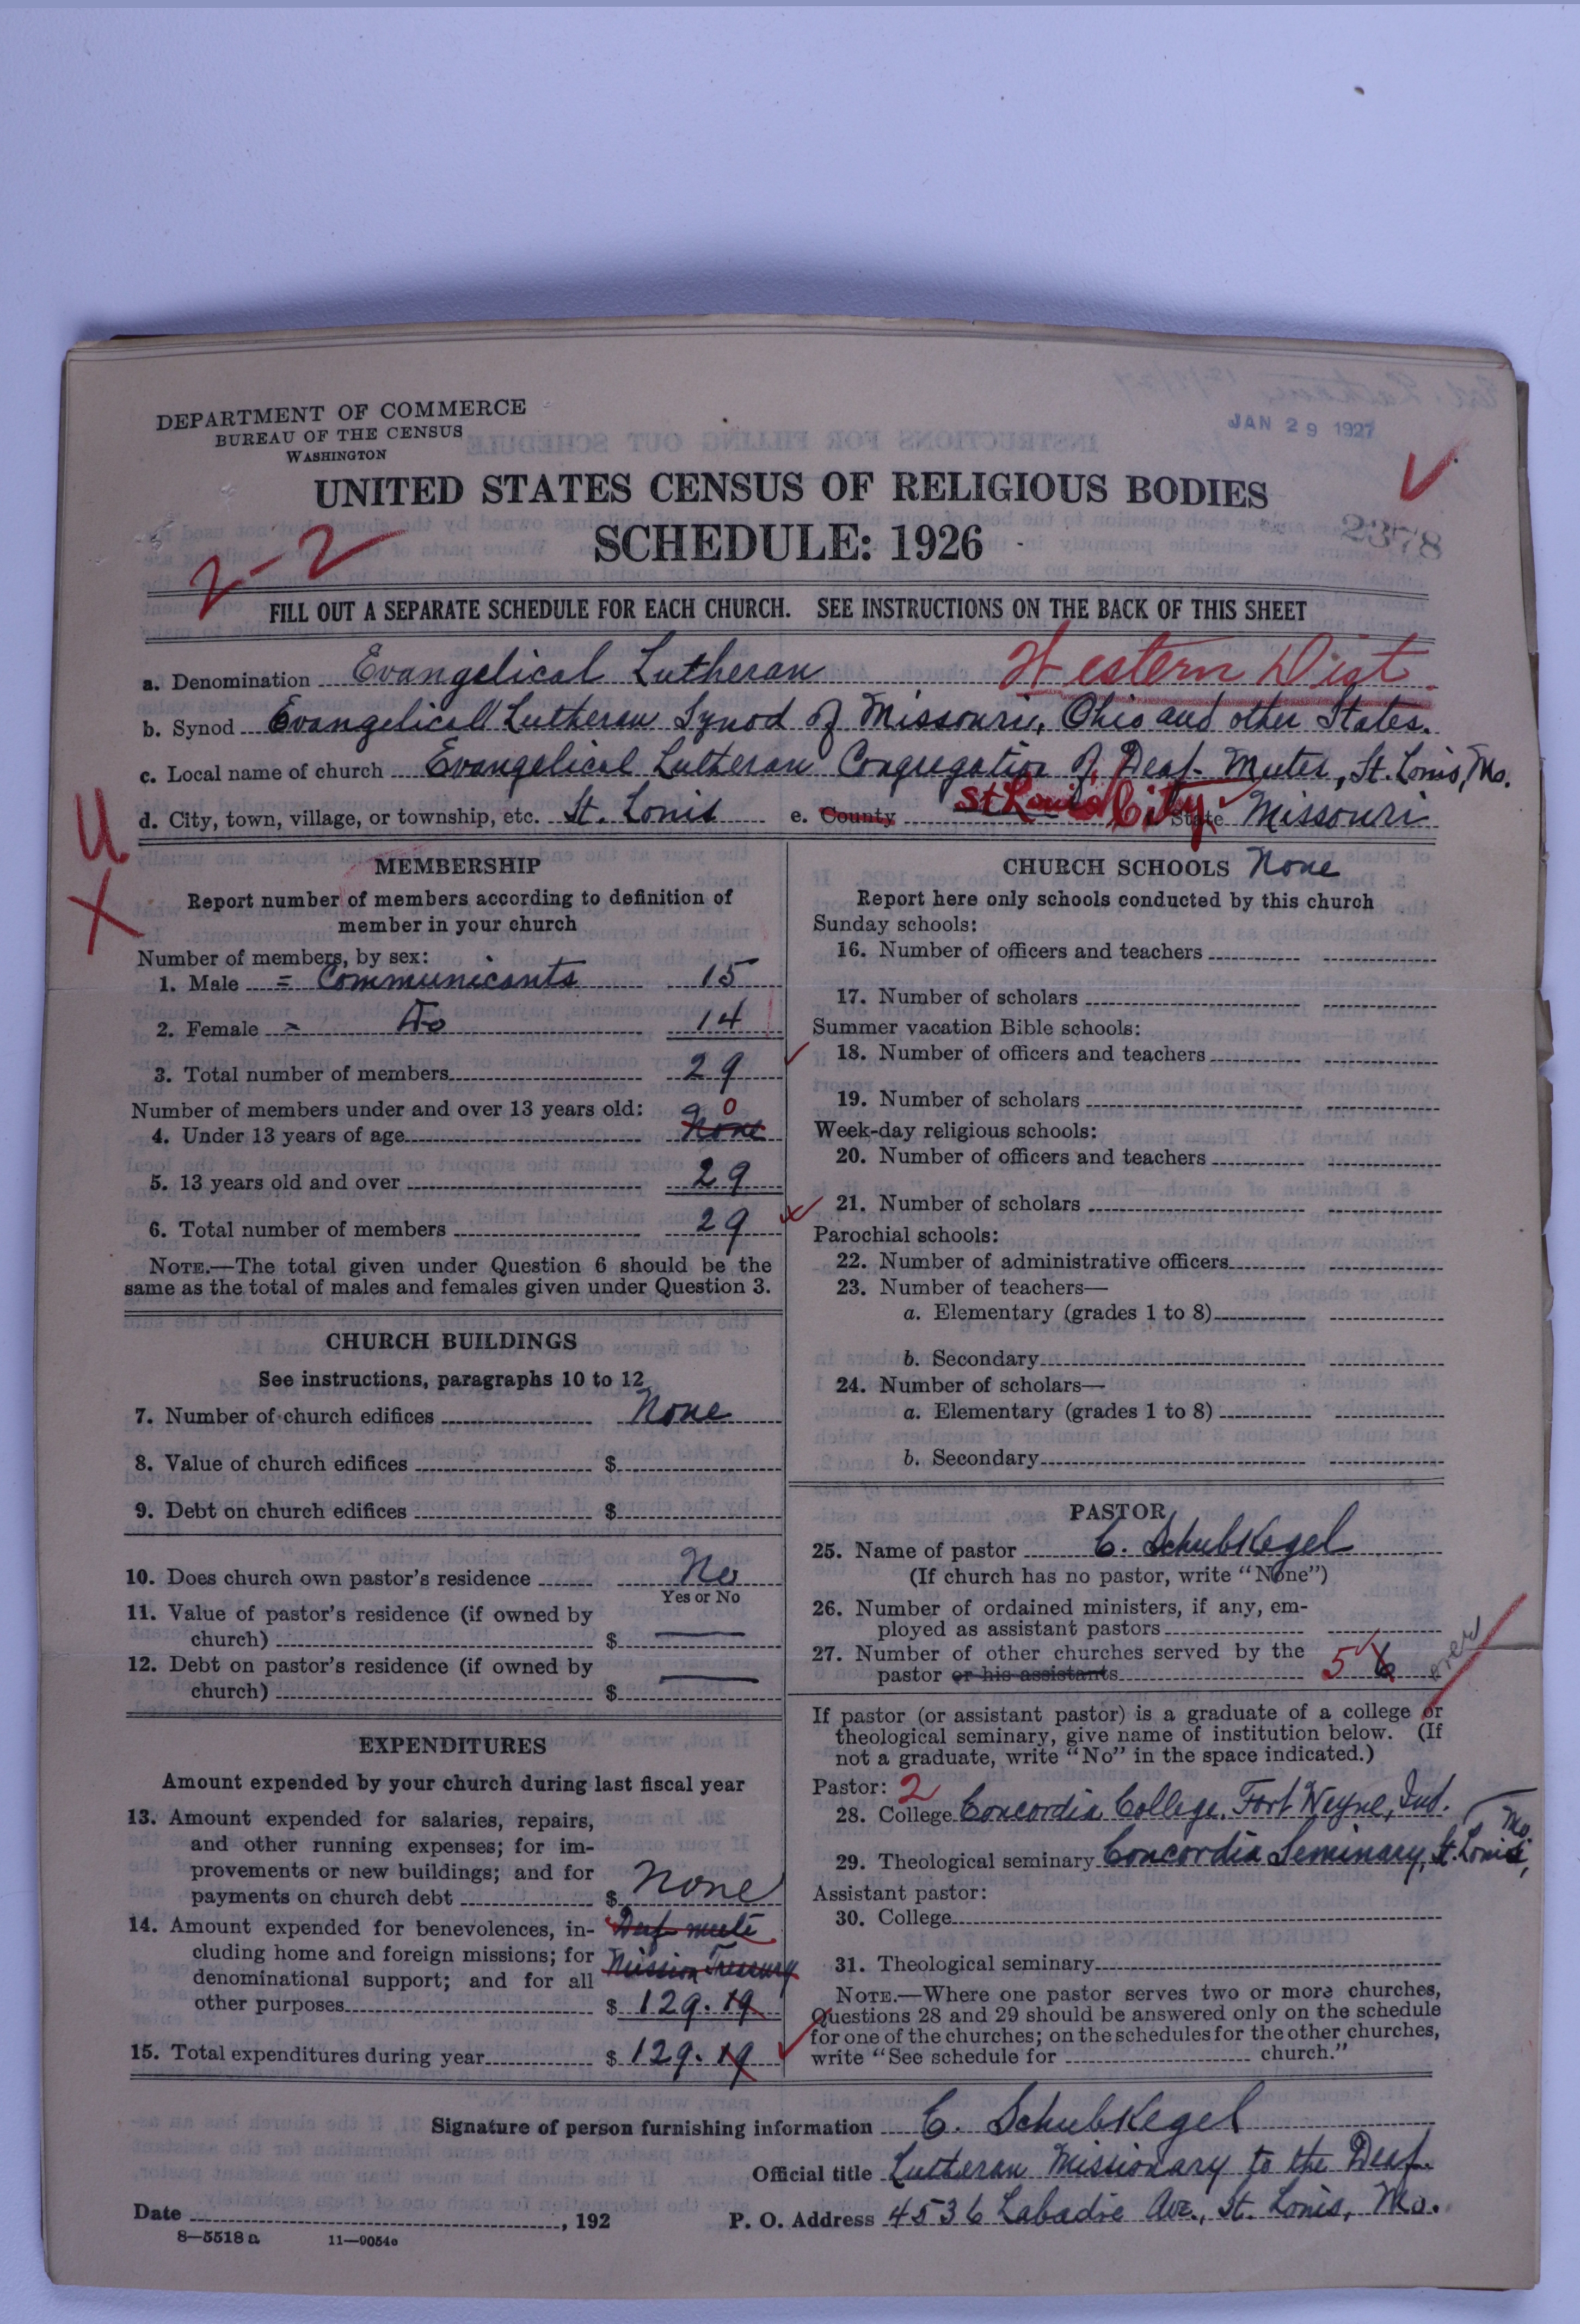 DEPARTMENT OF COMMERCE
BUREAU OF THE CENSUS
WASHINGTON
JAN 29 1927
UNITED STATES CENSUS OF RELIGIOUS BODIES
SCHEDULE: 1926
2378
2-2
FILL OUT A SEPARATE SCHEDULE FOR EACH CHURCH. SEE INSTRUCTIONS ON THE BACK OF THIS SHEET
a. Denomination Evangelical Lutheran Western Dist.
b. Synod Evangelical Lutheran Synod of Missouri, Ohio and other States.
c. Local name of church Evangelical Lutheran Congregation of Deaf-Mutes, St. Louis, Mo.
d. City, town, village, or township, etc. St. Louis e. County St Louis City State Missouri
U
X
MEMBERSHIP
Report number of members according to definition of
member in your church
Number of members, by sex:
1. Male = Communicants 15
2. Female = Do 14
3. Total number of members 29
Number of members under and over 13 years old:
0
4. Under 13 years of age None
5. 13 years old and over 29
6. Total number of members 29
NOTE.—The total given under Question 6 should be the
same as the total of males and females given under Question 3.
CHURCH BUILDINGS
See instructions, paragraphs 10 to 12
7. Number of church edifices None
8. Value of church edifices $
9. Debt on church edifices $
10. Does church own pastor's residence No
Yes or No
11. Value of pastor's residence (if owned by
church) $ —
12. Debt on pastor's residence (if owned by
church) $ —
EXPENDITURES
Amount expended by your church during last fiscal year
13. Amount expended for salaries, repairs,
and other running expenses; for im-
provements or new buildings; and for
payments on church debt $ None
14. Amount expended for benevolences, in- Deaf-mute
cluding home and foreign missions; for Mission Treasury
denominational support; and for all
other purposes $ 129.19
15. Total expenditures during year $ 129.19
CHURCH SCHOOLS None
Report here only schools conducted by this church
Sunday schools:
16. Number of officers and teachers
17. Number of scholars
Summer vacation Bible schools:
18. Number of officers and teachers
19. Number of scholars
Week-day religious schools:
20. Number of officers and teachers
21. Number of scholars
Parochial schools:
22. Number of administrative officers
23. Number of teachers—
a. Elementary (grades 1 to 8)
b. Secondary
24. Number of scholars—
a. Elementary (grades 1 to 8)
b. Secondary
PASTOR
25. Name of pastor C. Schubkegel
(If church has no pastor, write "None")
26. Number of ordained ministers, if any, em-
ployed as assistant pastors
27. Number of other churches served by the
pastor or his assistants 5 6 over
If pastor (or assistant pastor) is a graduate of a college or
theological seminary, give name of institution below. (If
not a graduate, write "No" in the space indicated.)
Pastor: 2
28. College Concordia College, Fort Wayne, Ind.
29. Theological seminary Concordia Seminary, St. Louis, Mo.
Assistant pastor:
30. College
31. Theological seminary
NOTE.—Where one pastor serves two or more churches,
Questions 28 and 29 should be answered only on the schedule
for one of the churches; on the schedules for the other churches,
write "See schedule for church."
Signature of person furnishing information C. Schubkegel
Official title Lutheran Missionary to the Deaf
Date , 192 P. O. Address 4536 Labadie Ave., St. Louis, Mo.
8—5518a 11—9054c